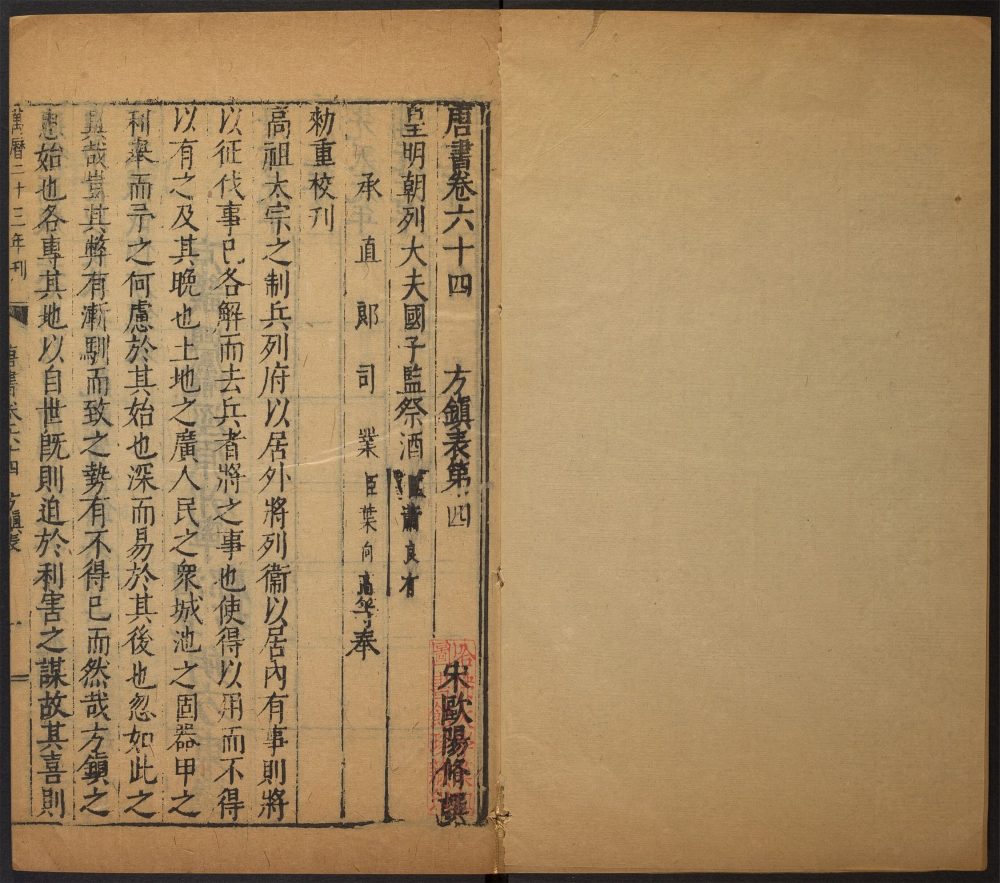 唐書卷六十四 方鎮表第四
宋歐陽脩撰
皇明朝列大夫國子監祭酒臣蕭良有
承直郎司業臣葉向高等奉
勑重校刊
高祖太宗之制兵列府以居外將列衞以居內有事則將
以征伐事已各解而去兵者將之事也使得以用而不得
以有之及其晚也土地之廣人民之衆城池之固器甲之
利舉而予之何慮於其始也深而易於其後也忽如此之
異哉豈其弊有漸馴而致之勢有不得已而然哉方鎮之
患始也各專其地以自世旣則迫於利害之謀故其喜則
萬曆二十三年刊 唐書卷六十四 方鎮表 一